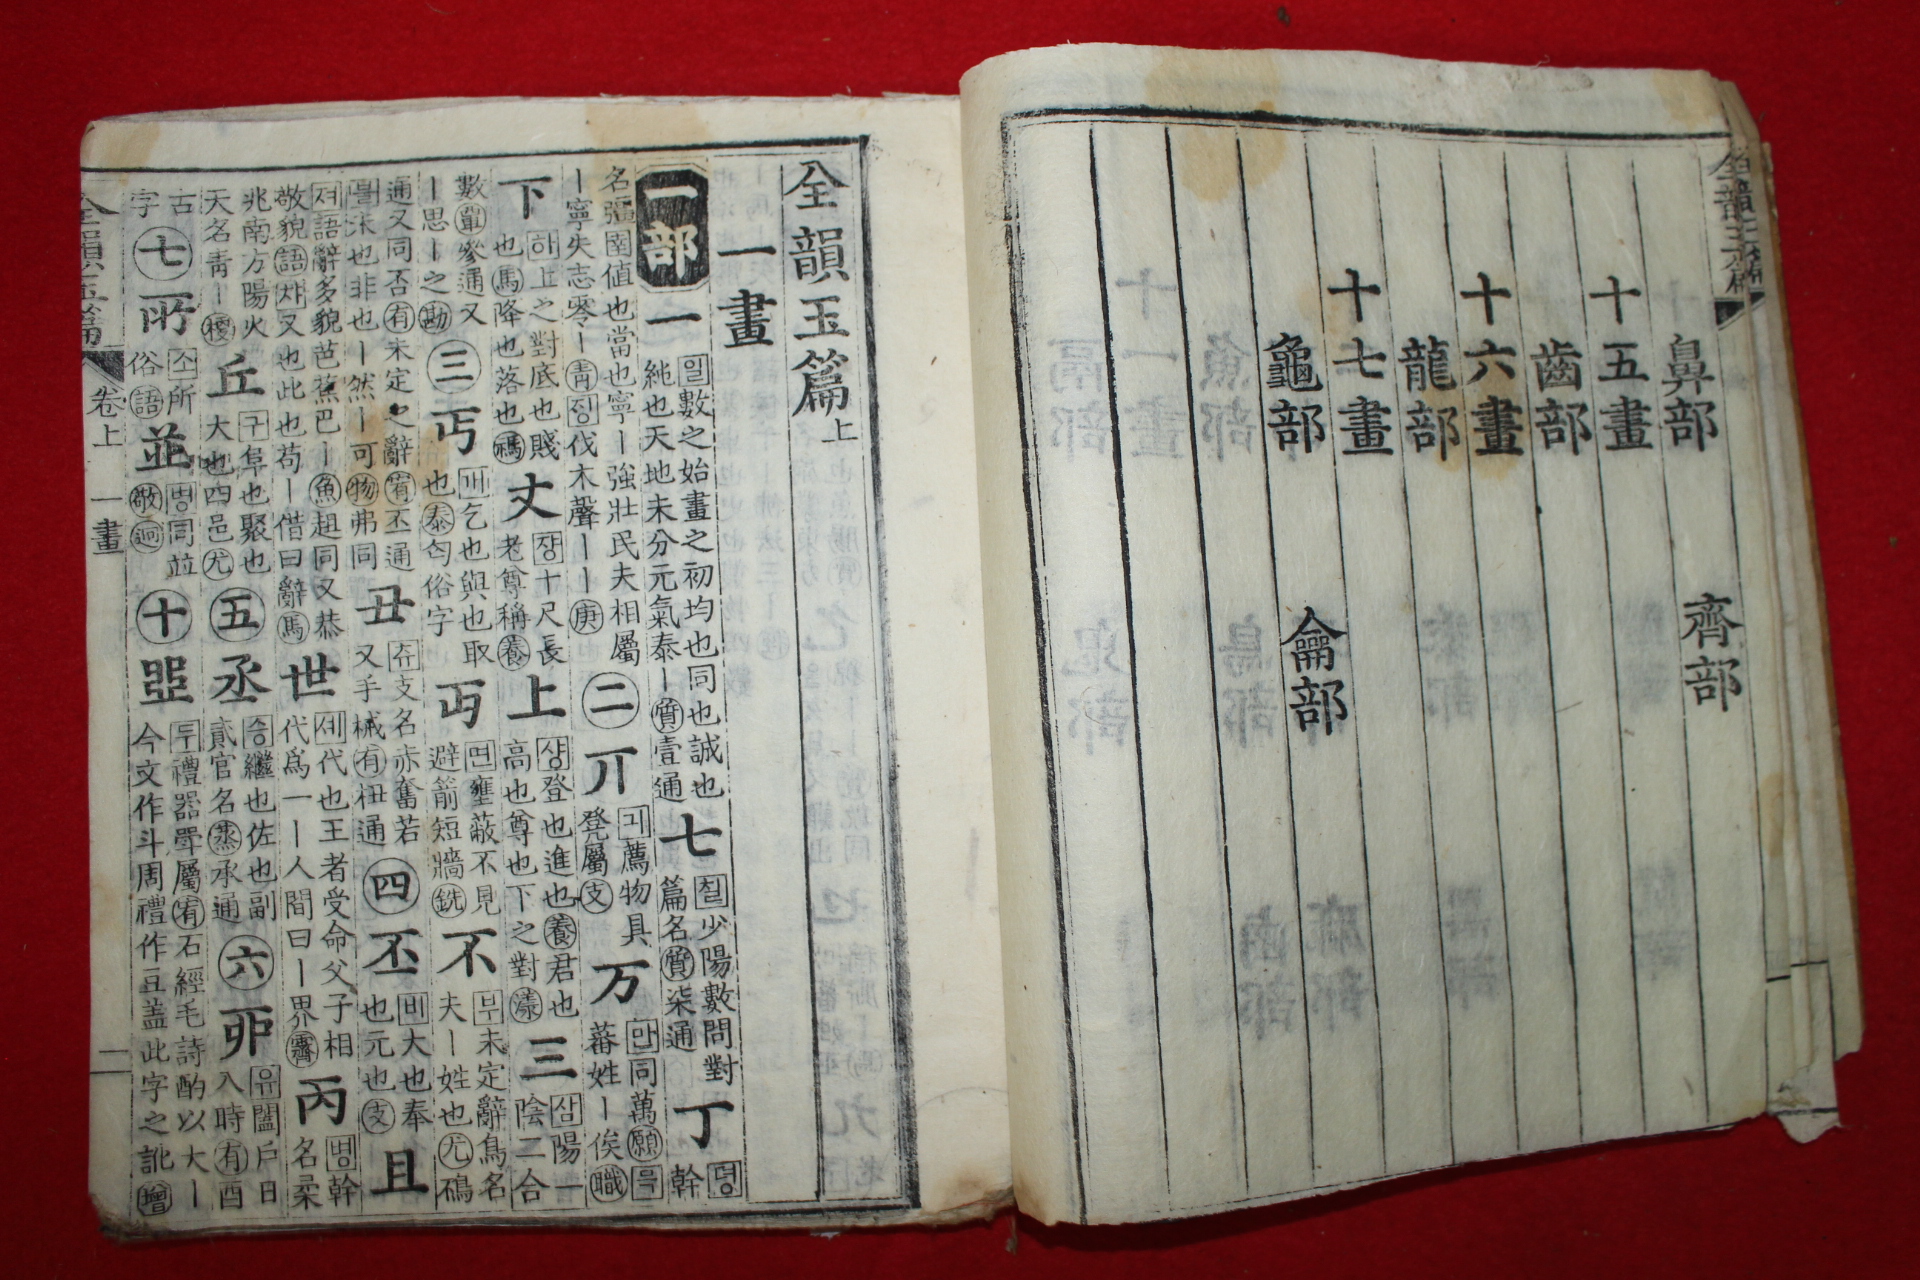 鼻部 齊部
十五畫
齒部
十六畫
龍部
十七畫
龜部 龠部
全韻玉篇上
一畫
一部 一 일數之始畫之初均也同也誠也純也天地未分元氣泰一質壹通 七 칠少陽數問對篇名質柒通 丁 뎡幹
名彊圉値也當也寧丨強壯民夫相屬丨寧失志零丨靑 징伐木聲丨丨庚 二 丌 긔薦物具凳屬支 万 만同萬願 믁蕃姓丨俟職
下 하上之對底也賤也馬降也落也禡 丈 쟝十尺長老尊稱養 上 샹登也進也養君也高也尊也下之對漾 三 삼陽一陰二合
數覃參通又丨思丨之勘 三 丐 개乞也與也取也泰匄俗字 丏 면壅蔽不見避箭短牆銑 不 부未定辭鳥名夫丨姓也尤鳿
通又同否有未定之辭宥丕通 불未也非也丨然丨可物弗同 丑 츄支名赤奮若又手械有杻通 四 丕 비大也奉也元也支 且
져語辭多貌芭蕉巴丨魚趄同又恭敬貌語 챠又也此也苟丨借曰辭馬 世 셰代也王者受命父子相代爲一丨人間曰丨界霽 丙 병幹名柔
兆南方陽火 丘 구阜也聚也大也四邑尤 五 丞 승繼也佐也副貳官名蒸承通 六 丣 유闔戶日入時有酉
古字 七 所 소所俗語 並 병同竝敬迥 十 두禮器斝屬宥石經毛詩酌以大丨今文作斗周禮作豆盖此字之訛增
全韻玉篇 卷上 一畫 二
全韻玉篇